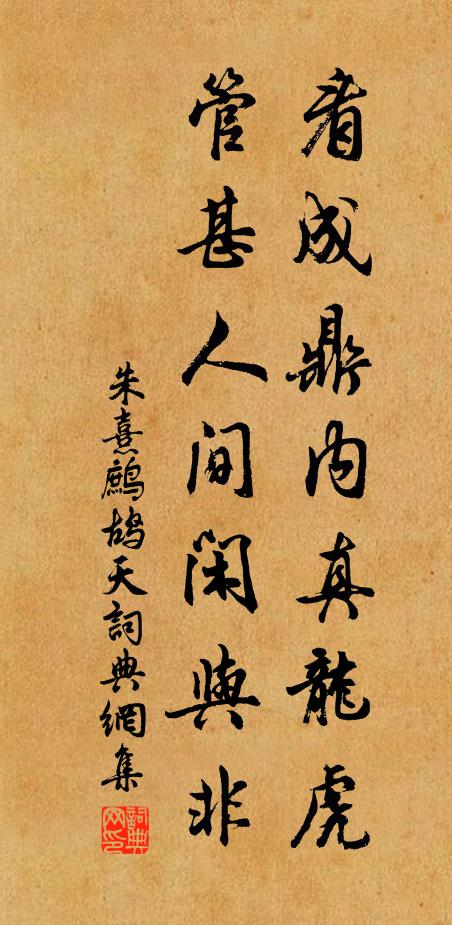 看成鼎内真龍虎
管甚人间闲與非
朱熹鷓鴣天詞典網集
詞典网印